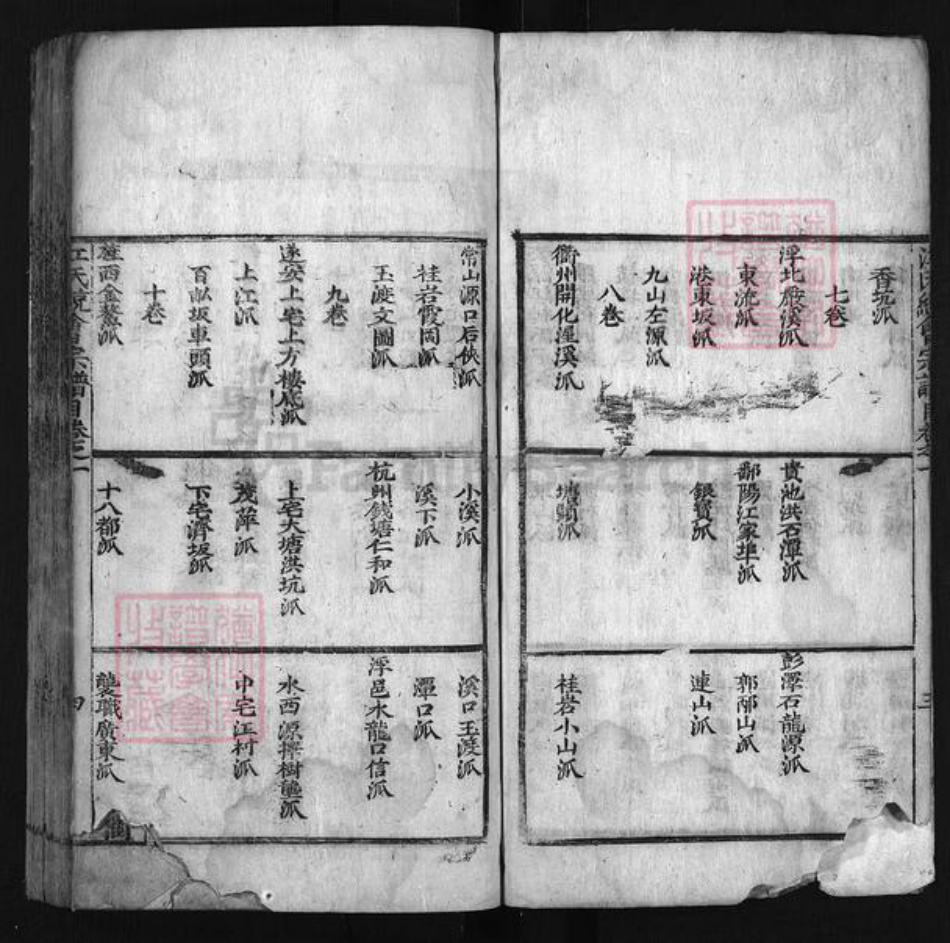 香坑派
七卷
浮北嚴溪派 貴池洪石潭派 彭澤石龍源派
東流派 鄱陽江家埠派 郭邴山派
港東坂派 銀賢派 連山派
九山左源派
八卷
衢州開化溼溪派 塘頭派 桂岩小山派
常山源口后俠派 小溪派 溪口玉渡派
桂岩霞岡派 溪下派 潭口派
玉渡文圖派 杭州錢塘仁和派 浮邑水龍口信派
九卷
遂安上宅上方樓底派 上宅大塘洪坑派 水西源擇樹壟派
上江派 茂薛派 中宅江村派
百畝坂車頭派 下宅濟坂派
十卷
旌西金鰲派 十八都派 襲職廣東派
江氏統會宗譜目卷之一
四